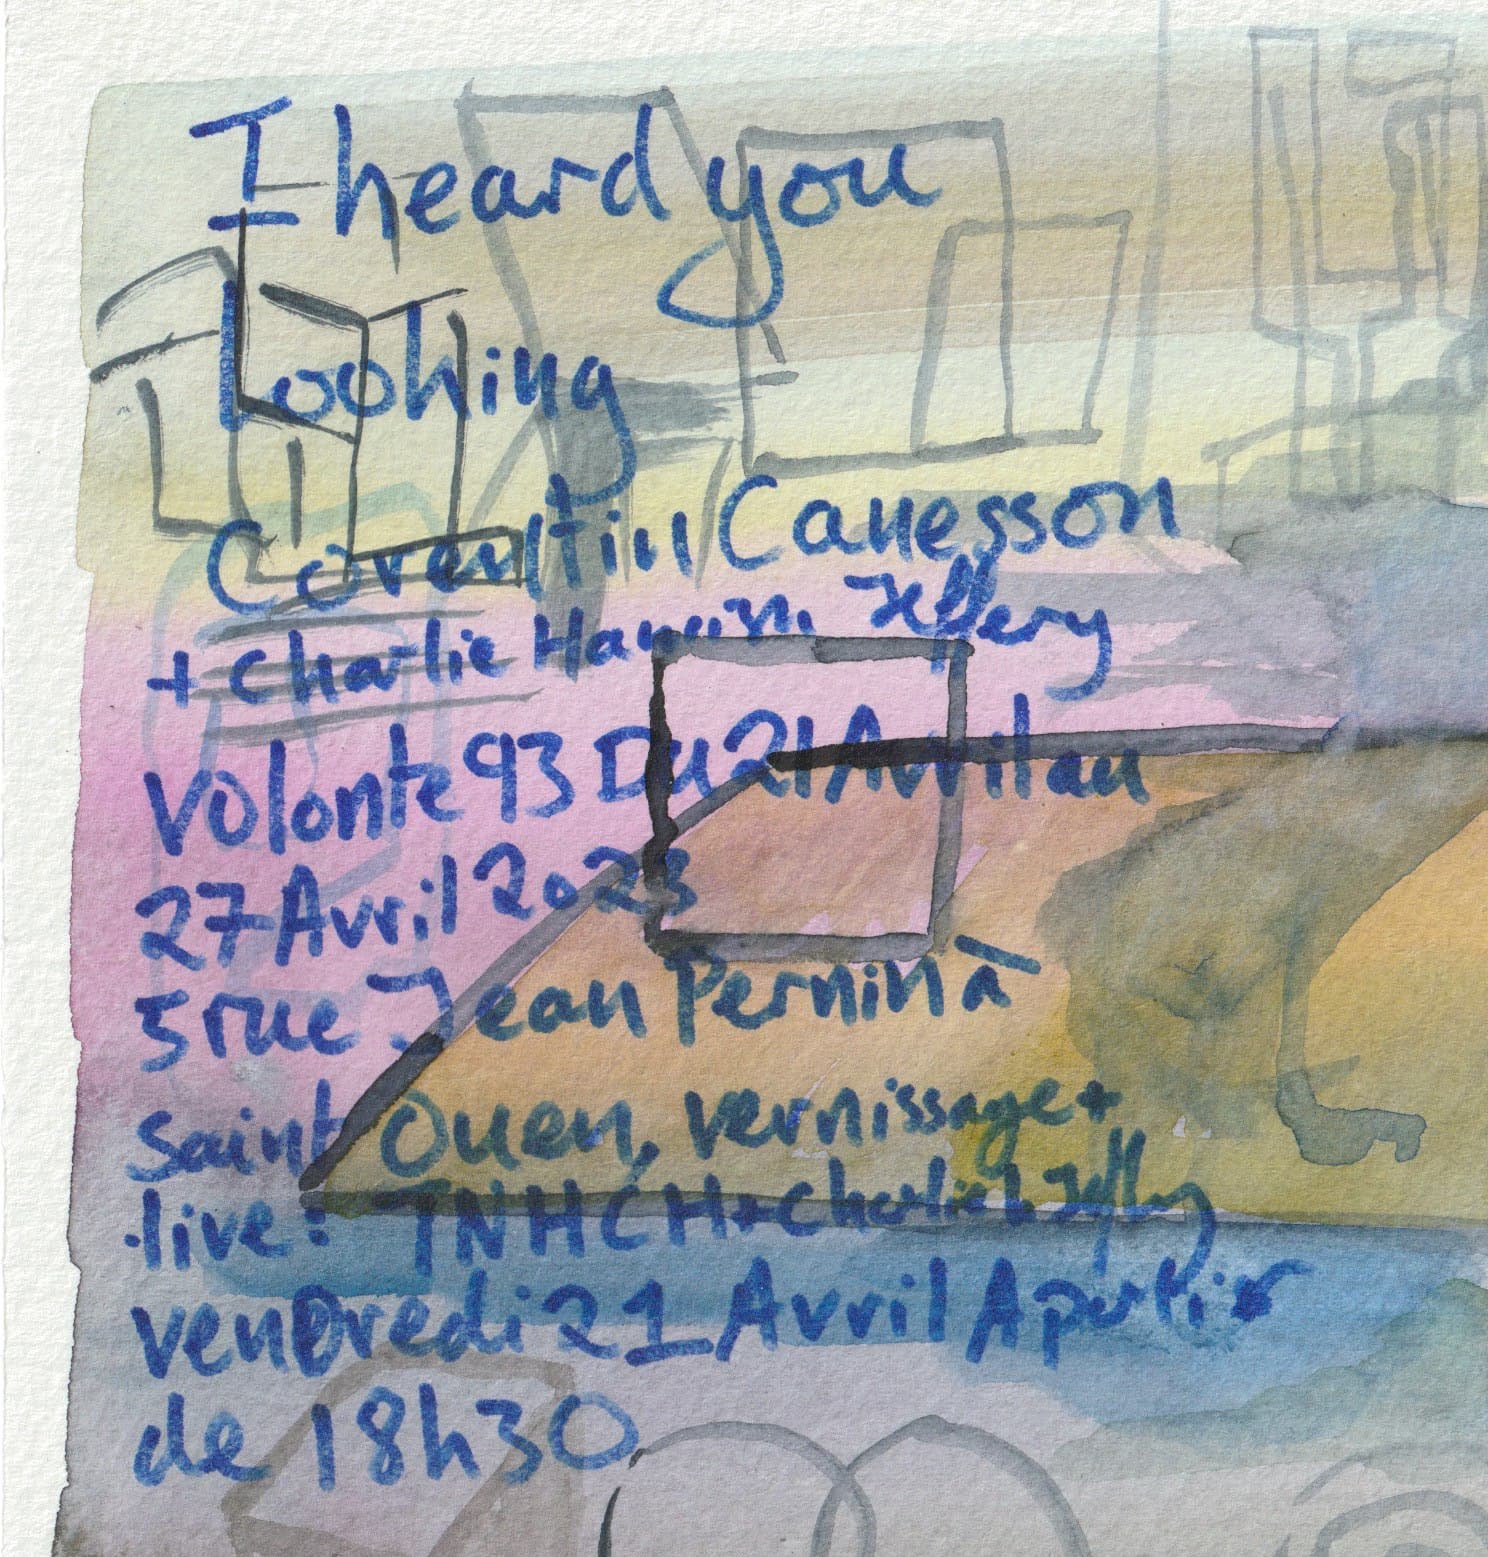 I heard you
Looking
Corentin Canesson
+ Charlie Hamish Jeffery
Volonte 93 Du 21 Avril au
27 Avril 2023
5 rue Jean Pernin à
Saint Ouen, vernissage +
live: TNHCH + Charlie h. Jeffery
vendredi 21 Avril A partir
de 18h30